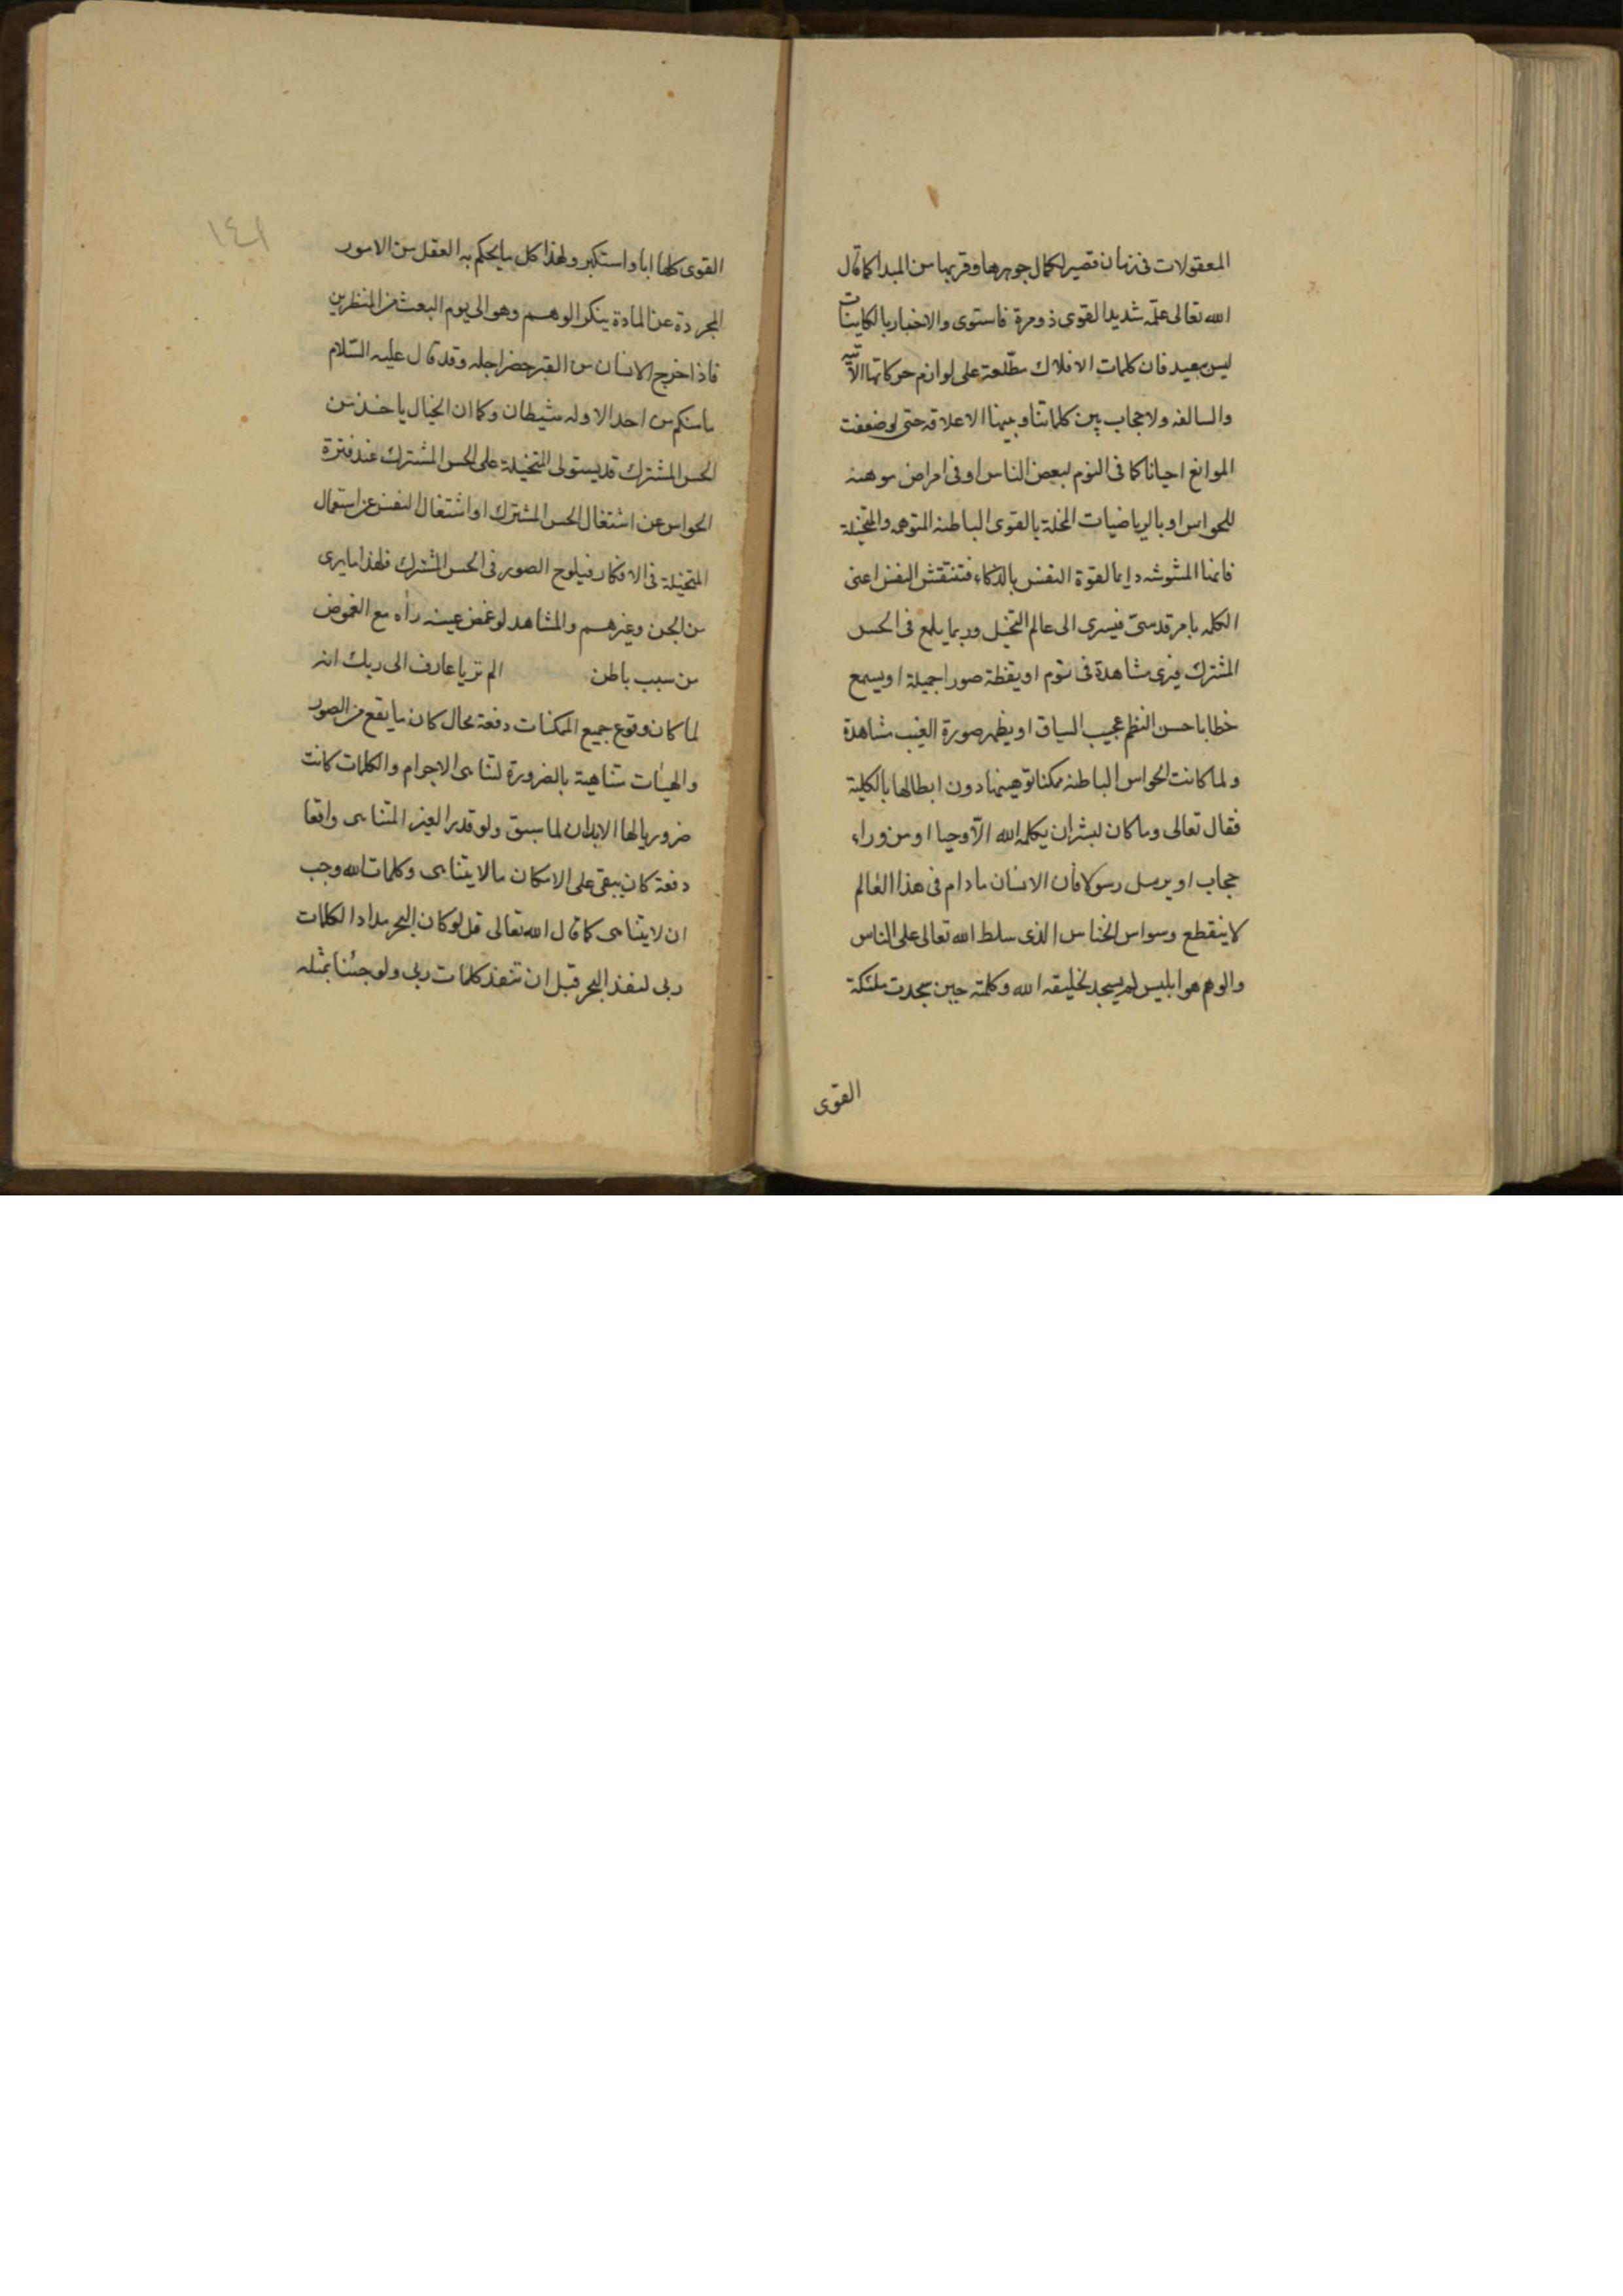 المعقولات فى زمان قصير لكمال جوهرها وقربها من المبدا كما قال
الله تعالى علّمه شديد القوى ذو مرة فاستوى والاخبار بالكاينات
ليس ببعيد فان كلمات الافلاك مطّلعة على لوازم حركاتها الآتية
والسالفه ولا حجاب بين كلماتنا وبينها الا علاقه حتى لو ضعفت
الموانع احيانا كما فى النوم لبعض الناس او فى امراض موهنه
للحواس او بالرياضيات المخلة بالقوى الباطنه المتوهمه والمتخيلة
فانها المشوشه دايما لقوة النفس بالذكاء فتنتقش النفس اعنى
الكلمه بامر قدسىّ فيسرى الى عالم التخيل وربما يلمع فى الحس
المشترك فيرى مشاهدة فى نوم او يقظة صورا جميلة او يسمع
خطابا حسن النظم عجيب السياق او يظهر صورة الغيب مشاهدة
ولما كانت الحواس الباطنه ممكنا توهينها دون ابطالها بالكلية
فقال تعالى وما كان لبشر ان يكلمه الله الّا وحيا او من وراء
حجاب او يرسل رسولا فان الانسان مادام فى هذا العالم
لا ينقطع وسواس الخناس الذى سلط الله تعالى على الناس
والوهم هو ابليس لم يسجد لخليقه الله وكلمته حين سجدت ملئكة
القوى
١٤١
القوى كلها ابا واستكبر ولهذا كل ما يحكم به العقل من الامور
المجردة عن المادة ينكر الوهم وهو الى يوم البعث من المنظرين
فاذا خرج الانسان من القبر حضر اجله وقد قال عليه السّلام
ما منكم من احد الا وله شيطان وكما ان الخيال ياخذ من
الحس المشترك قد يستولى المتخيلة على الحس المشترك عند فترة
الحواس عن اشتغال الحس المشترك او اشتغال النفس عن استعمال
المتخيلة فى الافكار فيلوح الصور فى الحس المشترك فلهذا ما يرى
من الجن وغيرهم والمشاهد لو غمض عينه رأه مع الغموض
من سبب باطن الم تر يا عارف الى ربك انه
لما كان وقوع جميع الممكنات دفعة محال كان ما يقع من الصور
والهيئات متناهية بالضرورة لتناهى الاجرام والكلمات كانت
ضروريا لها الابدان لما سبق ولو قدر الغير المتناهى واقعا
دفعة كان يبقى على الامكان ما لا يتناهى وكلمات الله وجب
ان لا يتناهى كما قال الله تعالى قل لو كان البحر مدادا لكلمات
ربى لنفذ البحر قبل ان تنفذ كلمات ربى ولو جئنا بمثله